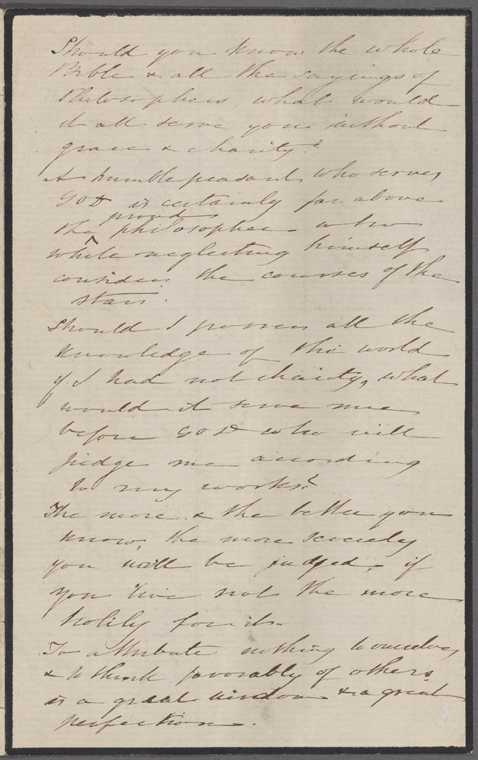 Should you know the whole
Bible & all the sayings of
Philosophers, what would
it all serve you without
grace & charity?
A humble peasant who serves
GOD is certainly far above
the ^ proud philosopher who
while neglecting himself
considers the courses of the
stars.
Should I possess all the
knowledge of this world
if I had not charity, what
would it serve me
before GOD who will
judge me according
to my works?
The more & the better you
know, the more severely
you will be judged, if
you live not the more
holily for it.
To attribute nothing to ourselves
& to think favorably of others
is a great wisdom & a great
perfection.